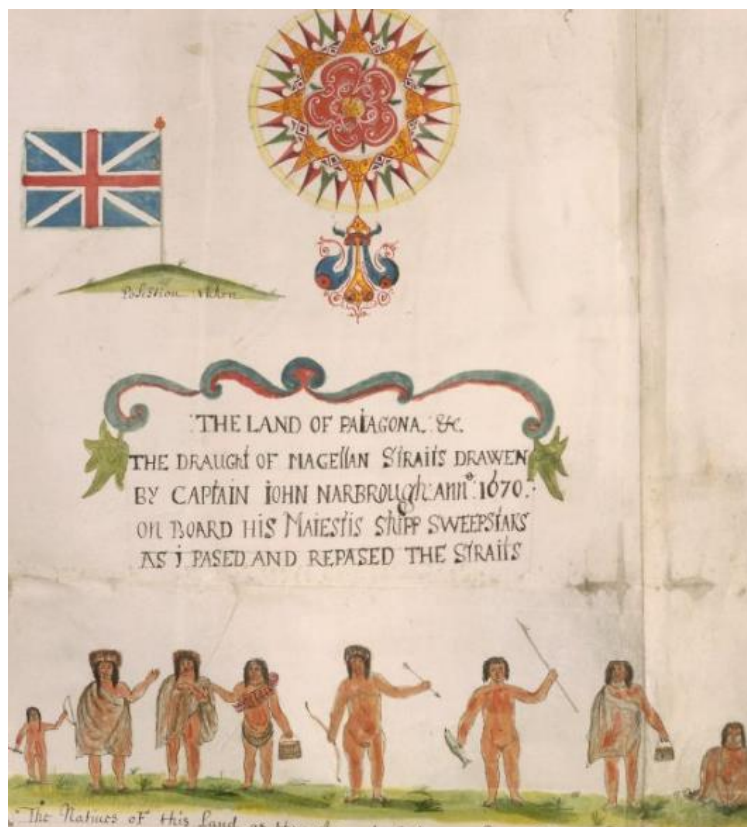 Posestion taken
THE LAND OF PATAGONA. &c.
THE DRAUGHT OF MAGELLAN STRAITS DRAWEN
BY CAPTAIN IOHN NARBROUGH: ANNº: 1670.
ON BOARD HIS MAIESTIS SHIPP SWEEPSTAKS
AS I PASED AND REPASED THE STRAITS
The Natives of this Land as they